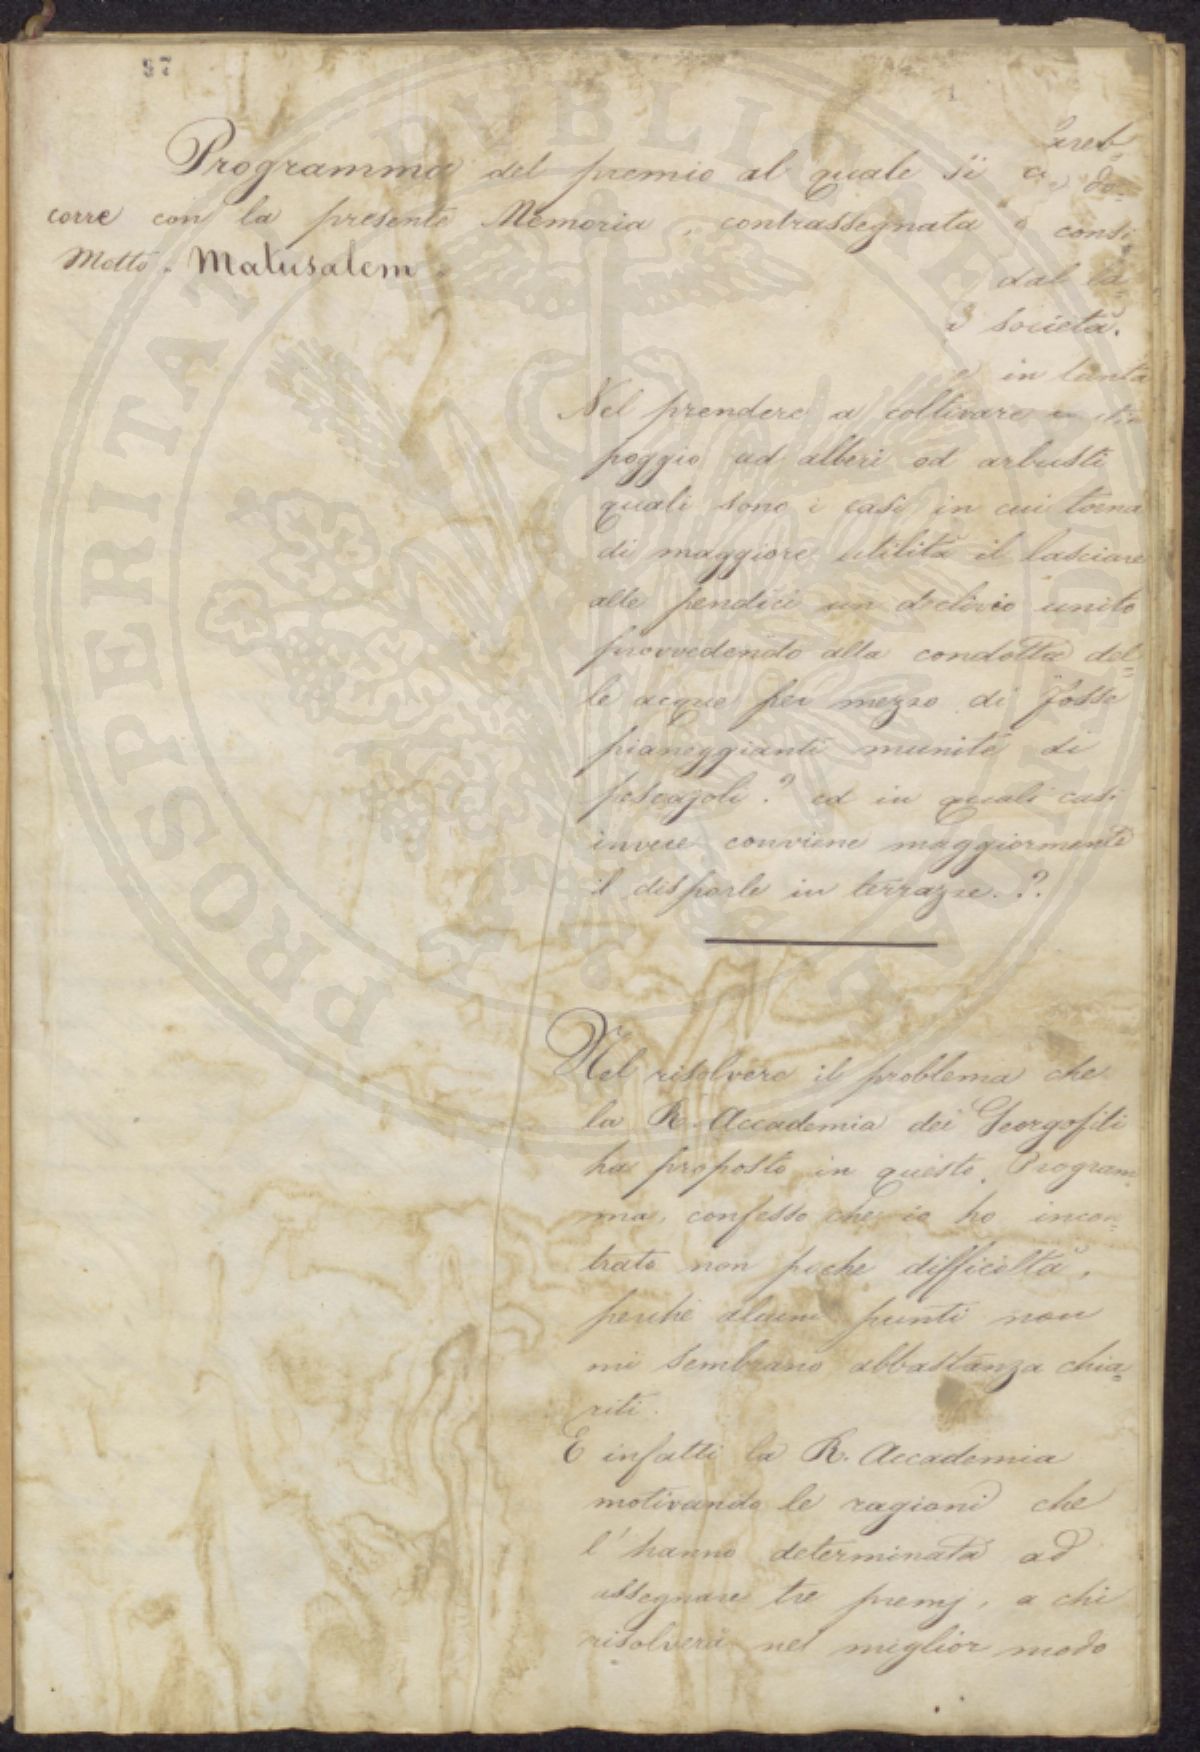 97
Programma del premio al quale si
corre con la presente Memoria, contrassegnata
Motto. Matusalem
consi
dal
società.
in tanta
Nel prendere a coltivare un
poggio ad alberi ed arbusti
quali sono i casi in cui torna
di maggiore utilità il lasciare
alle pendici un declivio unito
provvedendo alla condotta del=
le acque per mezzo di Fosse
pianeggianti munite di
pescajoli? ed in quali casi
invece conviene maggiormente
il disporle in terrazze.?.
Nel risolvere il problema che
la R. Accademia dei Georgofili
ha proposto in questo Program
ma, confesso che io ho incon=
trato non poche difficoltà,
perchè alcuni punti non
mi sembrano abbastanza chia=
riti.
E infatti la R. Accademia
motivando le ragioni che
l'hanno determinata ad
assegnare tre premj, a chi
risolverà nel miglior modo
PROSPERITATI PUBLICAE AUGENDAE